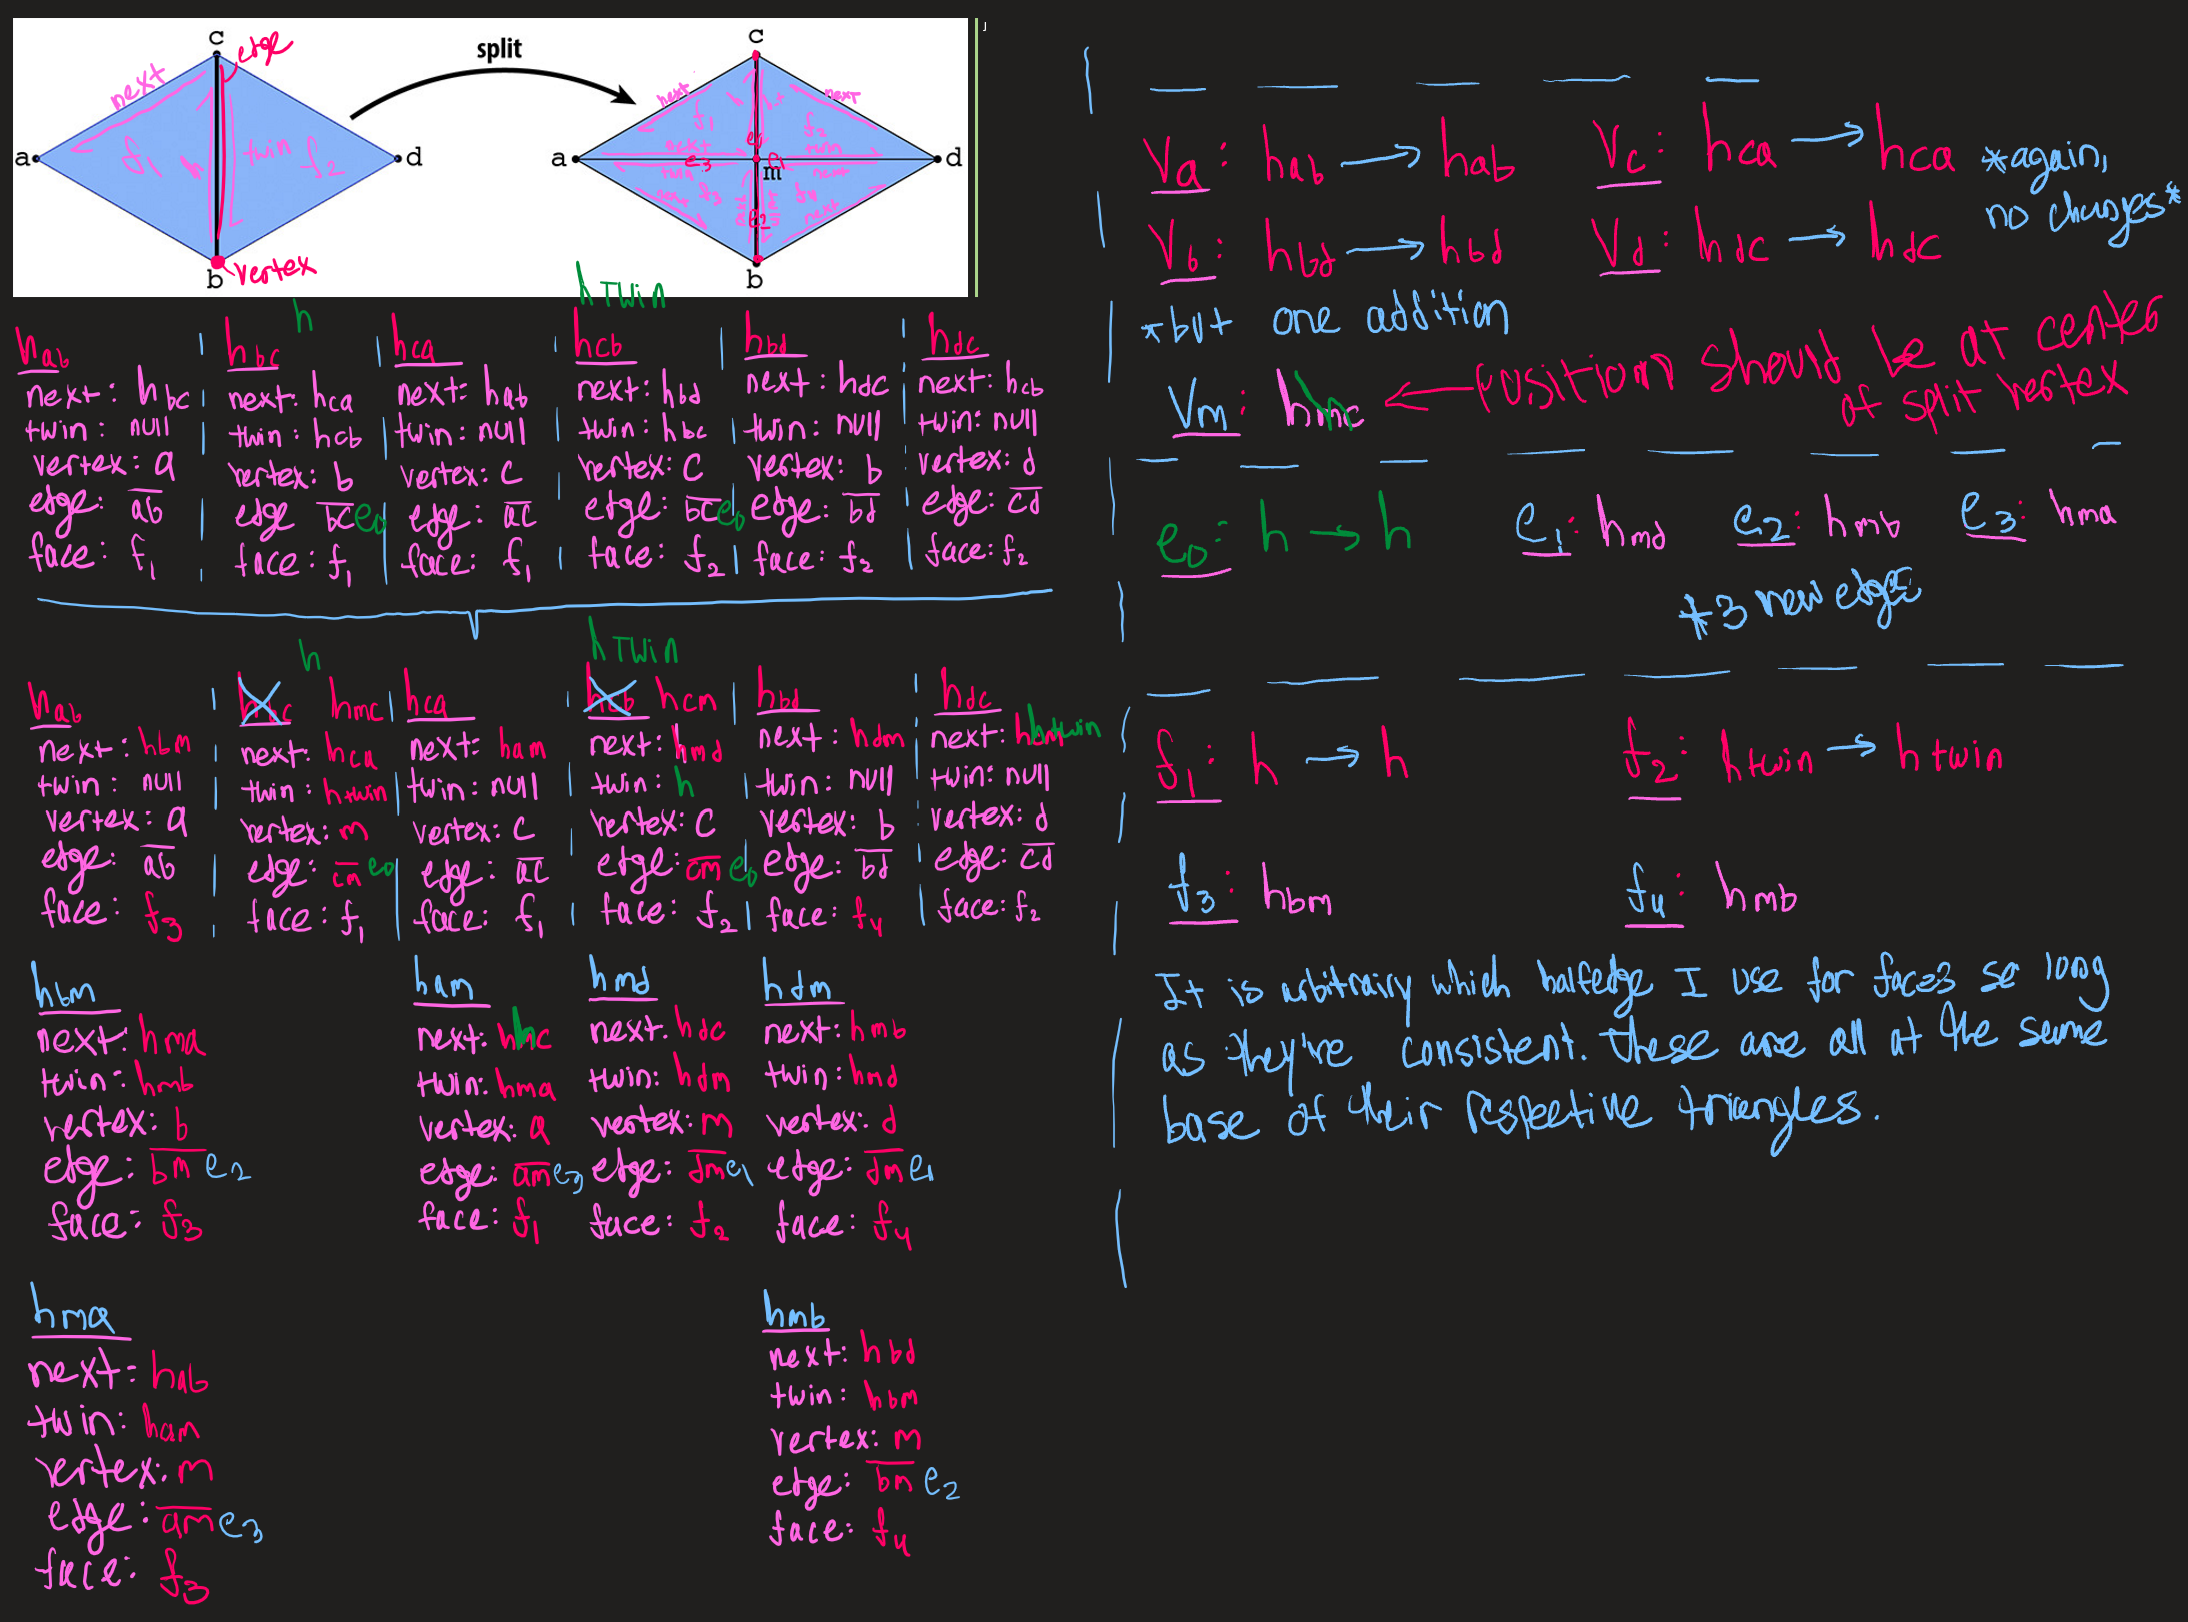 c
edge
next
a
f1
h
twin
f2
d
b
vertex
split
c
next
f1
h
next
f2
a
next
e3
twin
m
twin
next
d
f3
e2
next
b
h
h TWIN
hab
next: hbc
twin: null
vertex: a
edge: ab
face: f1
hbc
next: hca
twin: hcb
vertex: b
edge bc e0
face: f1
hca
next: hab
twin: null
vertex: c
edge: ac
face: f1
hcb
next: hbd
twin: hbc
vertex: c
edge: bc e0
face: f2
hbd
next: hdc
twin: null
vertex: b
edge: bd
face: f2
hdc
next: hcb
twin: null
vertex: d
edge: cd
face: f2
h
h TWIN
hab
next: hbm
twin: null
vertex: a
edge: ab
face: f3
hbc hmc
next: hca
twin: htwin
vertex: m
edge: cm e0
face: f1
hca
next: ham
twin: null
vertex: c
edge: ac
face: f1
hcb hcm
next: hmd
twin: h
vertex: c
edge: cm e0
face: f2
hbd
next: hdm
twin: null
vertex: b
edge: bd
face: f4
hdc
next: htwin
twin: null
vertex: d
edge: cd
face: f2
hbm
next: hma
twin: hmb
vertex: b
edge: bm e2
face: f3
ham
next: hmc
twin: hma
vertex: a
edge: am e3
face: f1
hmd
next: hdc
twin: hdm
vertex: m
edge: dm e1
face: f2
hdm
next: hmb
twin: hmd
vertex: d
edge: dm e1
face: f4
hma
next: hab
twin: ham
vertex: m
edge: am e3
face: f3
hmb
next: hbd
twin: hbm
vertex: m
edge: bm e2
face: f4
Va: hab → hab
Vc: hca → hca
*again,
no changes*
Vb: hbd → hbd
Vd: hdc → hdc
*but one addition
Vm: hmc ← (position) should be at center
of split vertex
e0: h → h
e1: hmd
e2: hmb
e3: hma
*3 new edges
f1: h → h
f2: htwin → htwin
f3: hbm
f4: hmb
It is arbitrairy which halfedge I use for faces so long
as they're consistent. These are all at the same
base of their respective triangles.